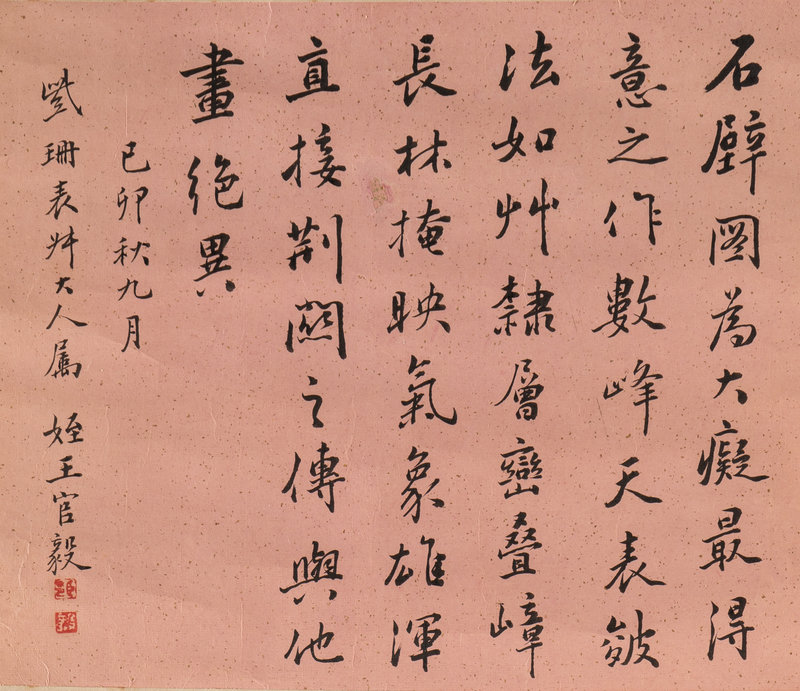 石壁圖為大癡最得
意之作數峰天表皴
法如艸隸層巒疊嶂
長林掩映氣象雄渾
直接荆關之傳與他
畫絕異
己卯秋九月
珊表叔大人属 姪王官毅